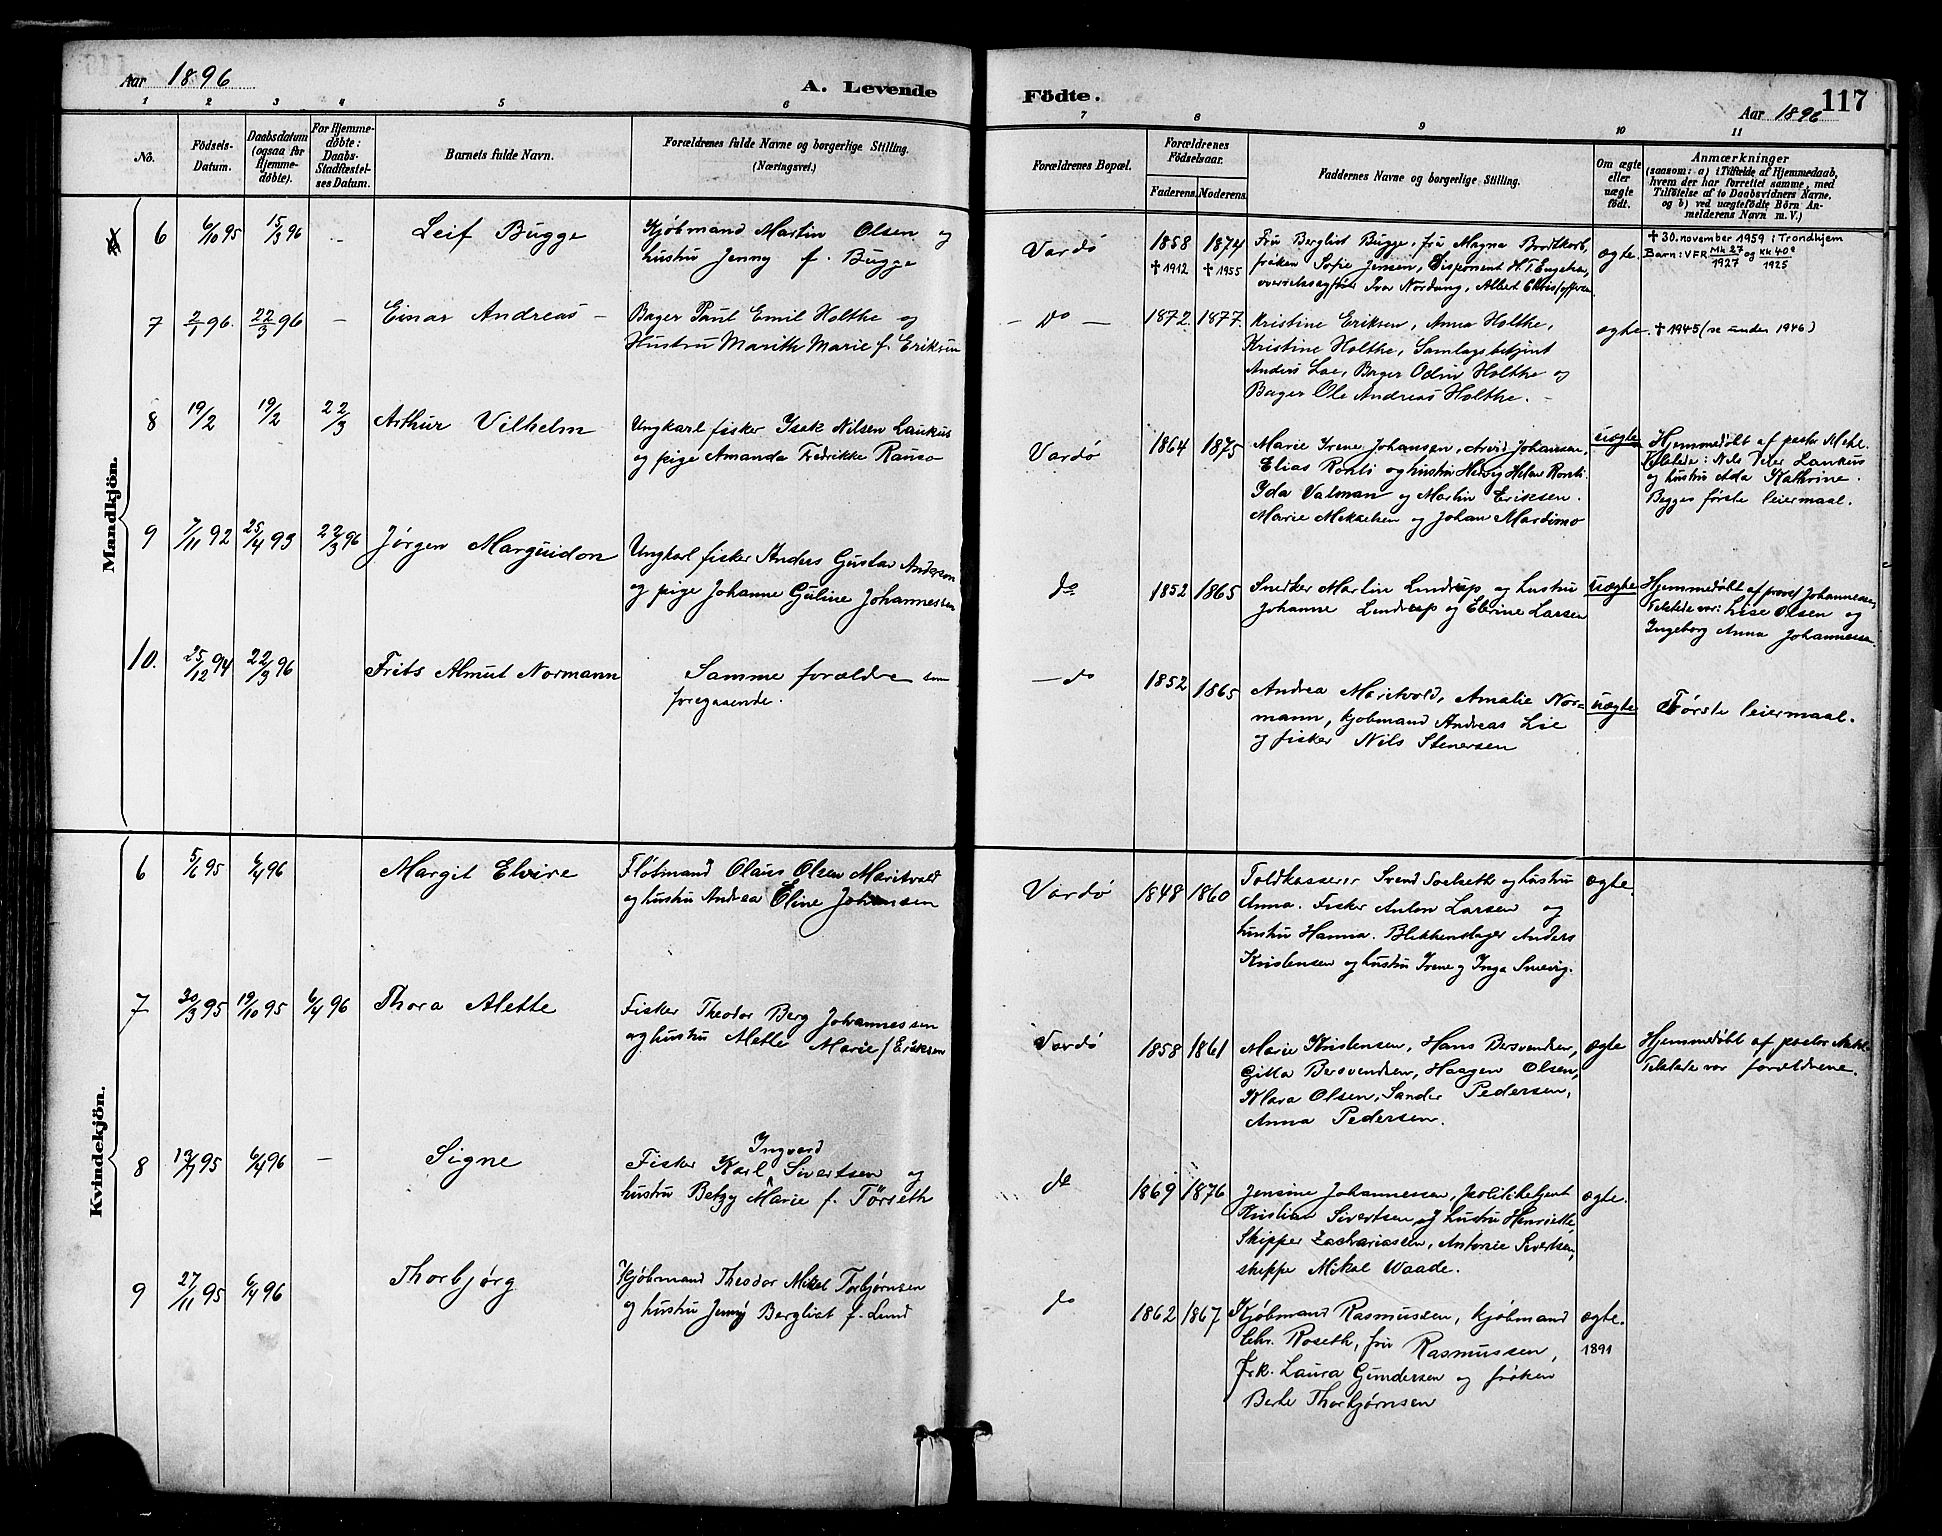 Aar 1896
A. Levende
Födte.
117
Aar 1896
1 2 3 4 5 6 7 8 9 10 11
No.
Födsels-
Datum.
Daabsdatum
(ogsaa for
Hjemme-
döbte).
For Hjemme-
döbte:
Daabs-
Stadfæstel-
ses Datum.
Barnets fulde Navn.
Forældrenes fulde Navne og borgerlige Stilling.
(Næringsvei.)
Forældrenes Bopæl.
Forældrenes
Födselsaar.
Faderens. Moderens.
Faddernes Navne og borgerlige Stilling.
Om ægte
eller
uægte
födt.
Anmærkninger
(saasom: a) i Tilfælde af Hjemmedaab,
hvem der har forrettet samme, med
Tilföielse af to Daabsvidners Navne,
og b) ved uægtefödte Börn An-
melderens Navn m. V.)
Mandkjön.
6 6/10 95 15/3 96 - Leif Bugge
Kjøbmand Martin Olsen og
hustru Jenny f. Bugge
Vardö 1858 1874
✝ 1912 ✝ 1955
Fru Bergliot Bugge, fru Magna Brodtkorb,
frøken Sofie Jensen, Disponent H. T. Engelsen,
overretssagfører Ivar Nordung, Albert Christoffersen
ægte.
✝ 30. november 1959 i Trondhjem
Barn: VFR Mk 27/1927 og kk 40/1925
7 2/1 96. 22/3 96 - Einar Andreas -
Bager Paul Emil Holthe og
Hustru Marith Marie f. Eriksen
- Do - 1872. 1877.
Kristine Eriksen, Anna Holthe,
Kristine Holthe, Samlagsbetjent
Anders Loe, Bager Odin Holthe og
Bager Ole Andreas Holthe. -
ægte. ✝ 1945 (se under 1946)
8 19/2 19/2 22/3 Arthur Vilhelm
Ungkarl fisker Isak Nilsen Laukus
og pige Amanda Fredrikke Rauso
Vardö 1864 1875
Marie Irene Johansen, Arvid Johansen,
Elias Ronti og hustru Hedvig Helene Ronti
Ida Valman og Martin Eriksen.
Marie Mikkelsen og Johan Mardimo
uægte
Hjemmedøbt af pastor Mehl.
Tilstede: Nils Peter Laukus
og hustru Ada Kathrine.
Begges første leiermaal.
9 7/11 92 25/4 93 22/3 96 Jørgen Marguidon
Ungkarl fisker Anders Gustav Anderson
og pige Johanne Guline Johannessen
do 1852 1865
Snedker Martin Lindrup og hustru
Johanne Lindrup og Elerine Larsen
uægte
Hjemmedøbt af provst Johannessen,
Tilstede var: Lise Olsen og
Ingeborg Anna Johannessen
10. 25/12 94 22/3 96 Frits Almut Normann
Samme forældre som
foregaaende.
- do 1852 1865
Andrea Maritvold, Amalie Nor-
mann, kjøbmand Andreas Lie
og fisker Nils Stenersen
uægte Første leiermaal.
Kvindekjön.
6 5/6 95 6/4 96 Margit Elvire
Fløtmand Olaus Olsen Maritvold
og hustru Andrea Eline Johansen
Vardö 1848 1860
Toldkasserer Svend Soelseth og hustru
Anna. Fisker Anton Larsen og
hustru Hanna. Blikkenslager Anders
Kristensen og hustru Irene og Inga Smevig.
ægte.
7 30/3 95 19/10 95 6/4 96 Thora Alette
Fisker Theodor Berg Johannessen
og hustru Alette Marie f Eriksen
Vardö 1858 1861
Marie Kristensen, Hans Bersvendsen,
Gitta Bersvendsen, Haagen Olsen,
Klara Olsen, Sander Pedersen,
Anna Pedersen.
ægte
Hjemmedøbt af pastor Mehl.
Tilstede var forældrene.
8 19/7 95 6/4 96 - Signe
Ingvard
Fisker Karl Sivertsen og
hustru Betzy Marie f. Törseth
do 1869 1876
Jensine Johannessen, politibetjent
Kristian Sivertsen og hustru Henriette,
Skipper Zachariassen, Antonie Sivertsen,
skipper Mikal Waade.
ægte.
9 27/11 95 6/4 96 Thorbjørg
Kjøbmand Theodor Mikal Torbjørnsen
og hustru Jenny Bergliot f. Lund
do 1862 1867
Kjøbmand Rasmussen, kjøbmand
Chr. Roseth, fru Rasmussen,
Frk. Laura Gundersen og frøken
Berte Thorbjørnsen
ægte.
1891